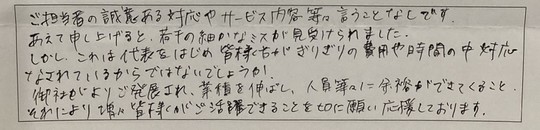 ご担当者の誠意ある対応やサービス内容等々言うことなしです。
あえて申し上げると、若干の細かなミスが見受けられました。
しかし、これは代表をはじめ皆様方がぎりぎりの費用や時間の中対応
なされているからではないでしょうか!
御社がよりご発展され、業績を伸ばし、人員等々に余裕ができてくること。
それにより増々皆様がご活躍できることを切に願い応援しております。